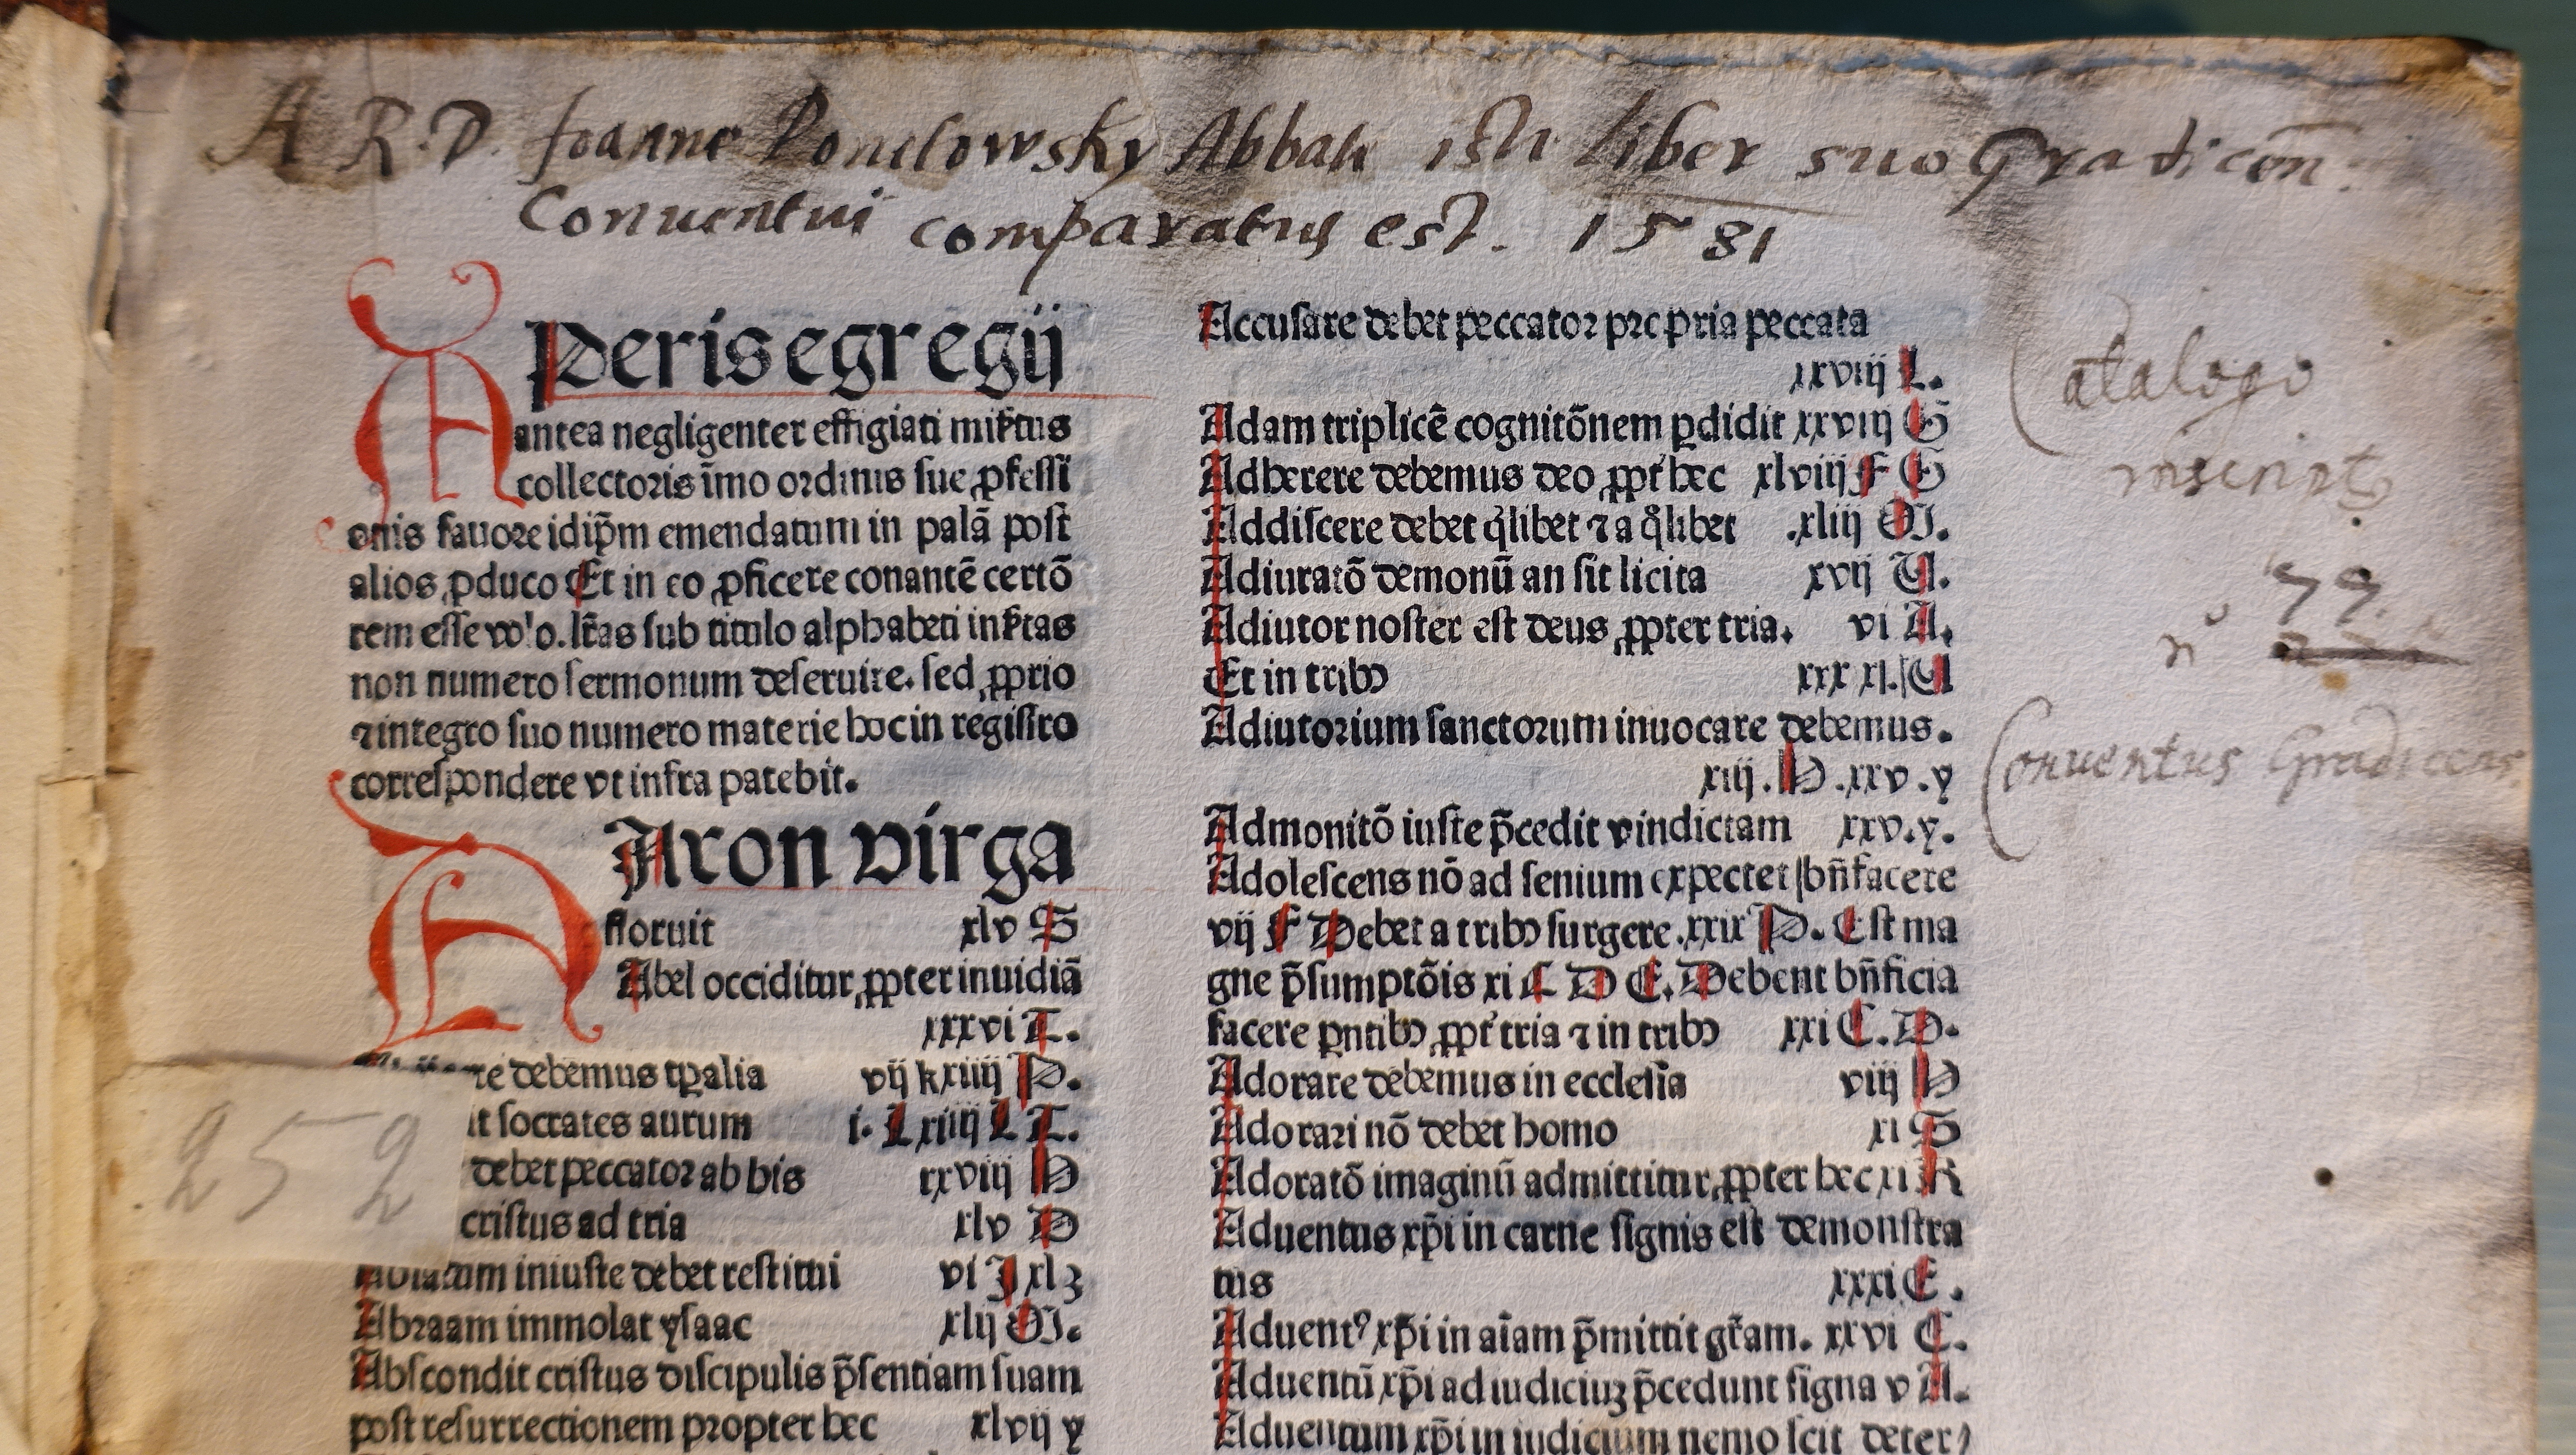 A R. D. Joanne Ponetowsky Abbate iste liber suo Gradicen̄:
Conuentui comparatus est. 1581
Operis egregij
antea negligenter effigiati
collectoris īmo ordinis sue ꝓfessi
onis fauore idip̄m emendatum in palā post
alios ꝓduco Et in eo ꝓficere conantē certō
rem esse volo. lr̄as sub titulo alphabeti insertas
non numero sermonum deseruire. sed ꝓprio
⁊ integro suo numero materie hoc in registro
correspondere vt infra patebit.
Aron virga
floruit xlv S
Abel occiditur ꝓpter inuidiā
xxxvi T.
re debemus tꝑalia vij k xiiij P.
it socrates aurum i. L xiiij L T.
debet peccator ab his xxviij H
cristus ad tria xlv D
iniuste debet restitui vi J xl z
Abraam immolat ysaac xlij M.
Abscondit cristus discipulis p̄sentiam suam
post resurrectionem propter hec xlvij y
Accusare debet peccator propria peccata
xxviij L.
Adam triplicē cognitōnem ꝑdidit xxviij G
Adherere debemus deo ꝓpt' hec xlviij F G
Addiscere debet q̇libet ⁊ a q̊libet .xliij M.
Adiuratō demonū an sit licita xvij U.
Adiutor noster est deus ꝓpter tria. vi A.
Et in tribꝰ xxx xl. U
Adiutorium sanctorum inuocare debemus.
xiij . H . xxv . y
Admonitō iuste p̄cedit vindictam xxv.y.
Adolescens nō ad senium expectet bn̄facere
vij F Debet a tribꝰ surgere .xxix P. Est ma
gne p̄sumptōis xi C D E. Debent bn̄ficia
facere ꝑntibꝰ ꝓpt' tria ⁊ in tribꝰ xxi C. D.
Adorare debemus in ecclesia viij H
Adorari nō debet homo xi S
Adoratō imaginū admittitur ꝓpter hec xi R
Aduentus xp̄i in carne signis est demonstra
tus xxxi E .
Aduentꝰ xp̄i in aīam p̄mittit gr̄am. xxvi C.
Aduentū xp̄i ad iudiciuꝫ p̄cedunt signa v A.
Aduentum xp̄i in iudicium nemo scit deter
Catalogo
inscript
79.
n
Conuentus Gradicens
252